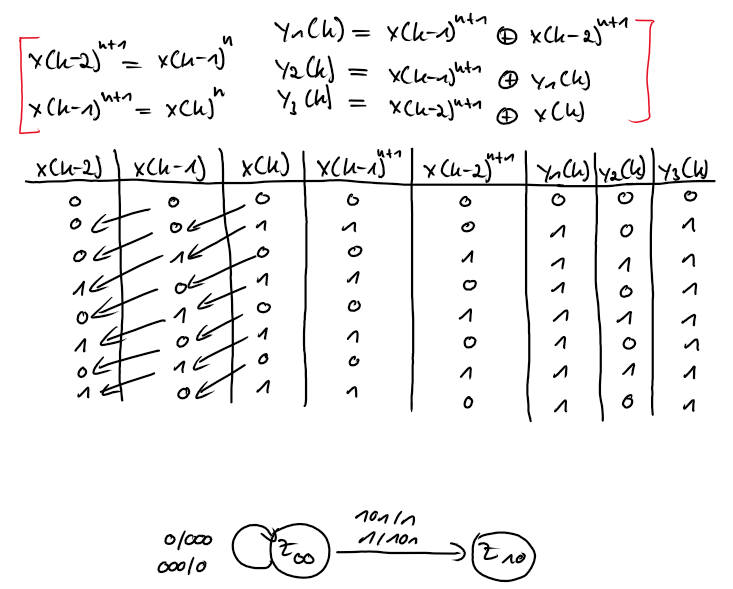 x(k-2)^{n+1} = x(k-1)^n    y1(k) = x(k-1)^{n+1} ⊕ x(k-2)^{n+1}
y2(k) = x(k-1)^{n+1} ⊕ y1(k)
x(k-1)^{n+1} = x(k)^n    y3(k) = x(k-2)^{n+1} ⊕ x(k)
x(k-2) x(k-1) x(k) x(k-1)^{n+1} x(k-2)^{n+1} y1(k) y2(k) y3(k)
0 0 0 0 0 0 0 0
0 0 1 1 0 1 0 1
0 1 0 0 1 1 1 1
1 0 1 1 0 1 0 1
0 1 0 0 1 1 1 1
1 0 1 1 0 1 0 1
0 1 0 0 1 1 1 1
1 0 1 1 0 1 0 1
101/1
0/000 z00 1/101 z10
000/0